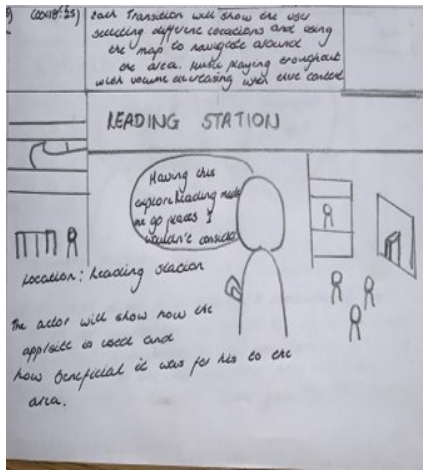 (00:18:25)
Each Transition will show the user
selecting different locations and using
the map to navigate around
the area. Music playing throughout
with volume decreasing when
READING STATION
Having this
explore Reading made
me go places I
wouldn't consider
Location: Reading station
The actor will show how the
app/site is used and
how beneficial it was for his to the
area.